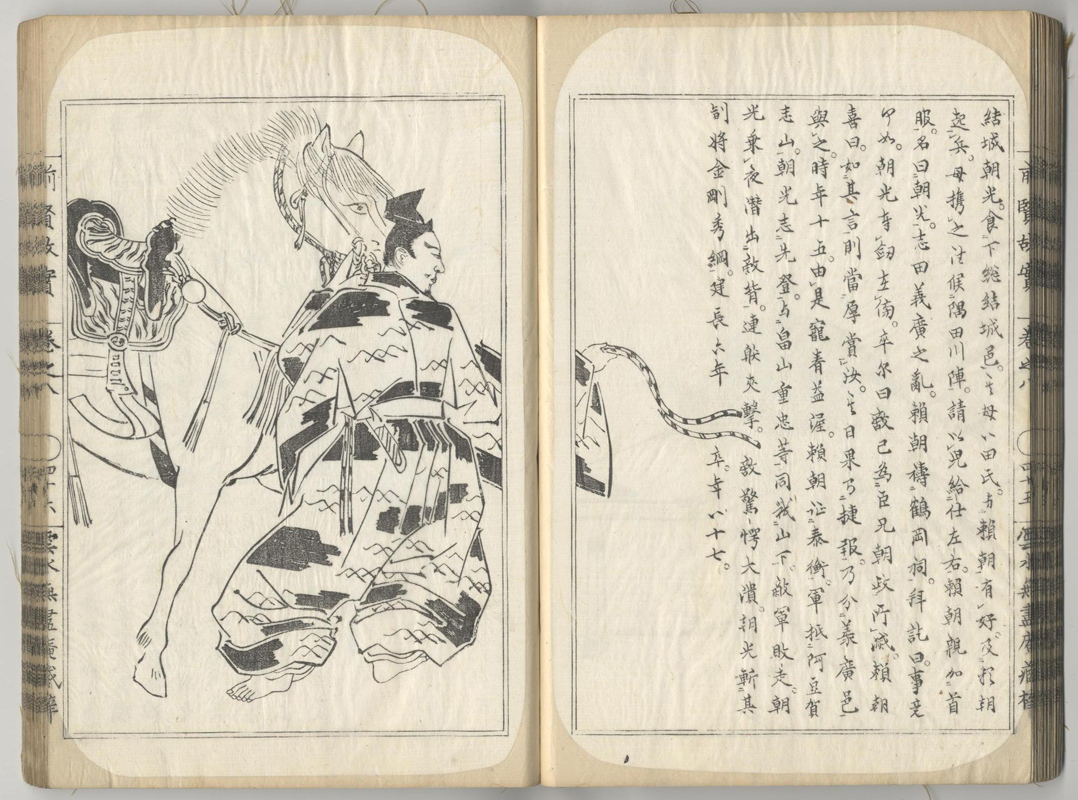 結城朝光。食下総結城邑。其母八田氏。与賴朝有好。及於朝
起兵。母携之往候隅田川陣。請以児給仕左右。賴朝親加首
服。名曰朝光。志田義廣之亂。賴朝禱鶴岡祠。拜訖曰。事竟
如。朝光奉劔在傍。卒尔曰。義已為臣兄朝政所滅。賴朝
喜曰。如其言則當厚賞汝。其日果有捷報。乃分義廣邑
與之。時年十五。由是寵眷益渥。賴朝征泰衡。軍抵阿豆賀
志山。朝光志先登。与畠山重忠等同我山下。敵軍敗走。朝
光乗夜潜出敵背。連射夾擊。敵驚愕大潰。朝光斬其
別将金剛秀綱。建長六年　卒。年八十七。
前賢故實
卷之八
四十五
雲水無盡庵藏
前賢故實
卷之八
四十六
雲水無盡庵藏